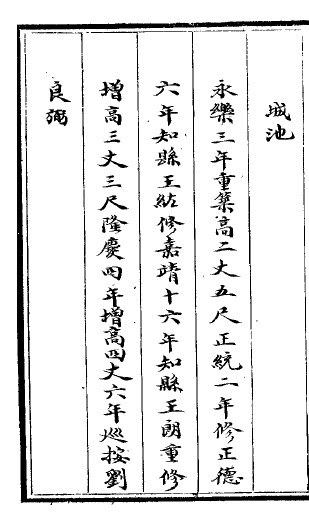 城池
永樂三年重築高二丈五尺正統二年修正德
六年知縣王紌修嘉靖十六年知縣王朗重修
增高三丈三尺隆慶四年增高四丈六年巡按劉
良弼